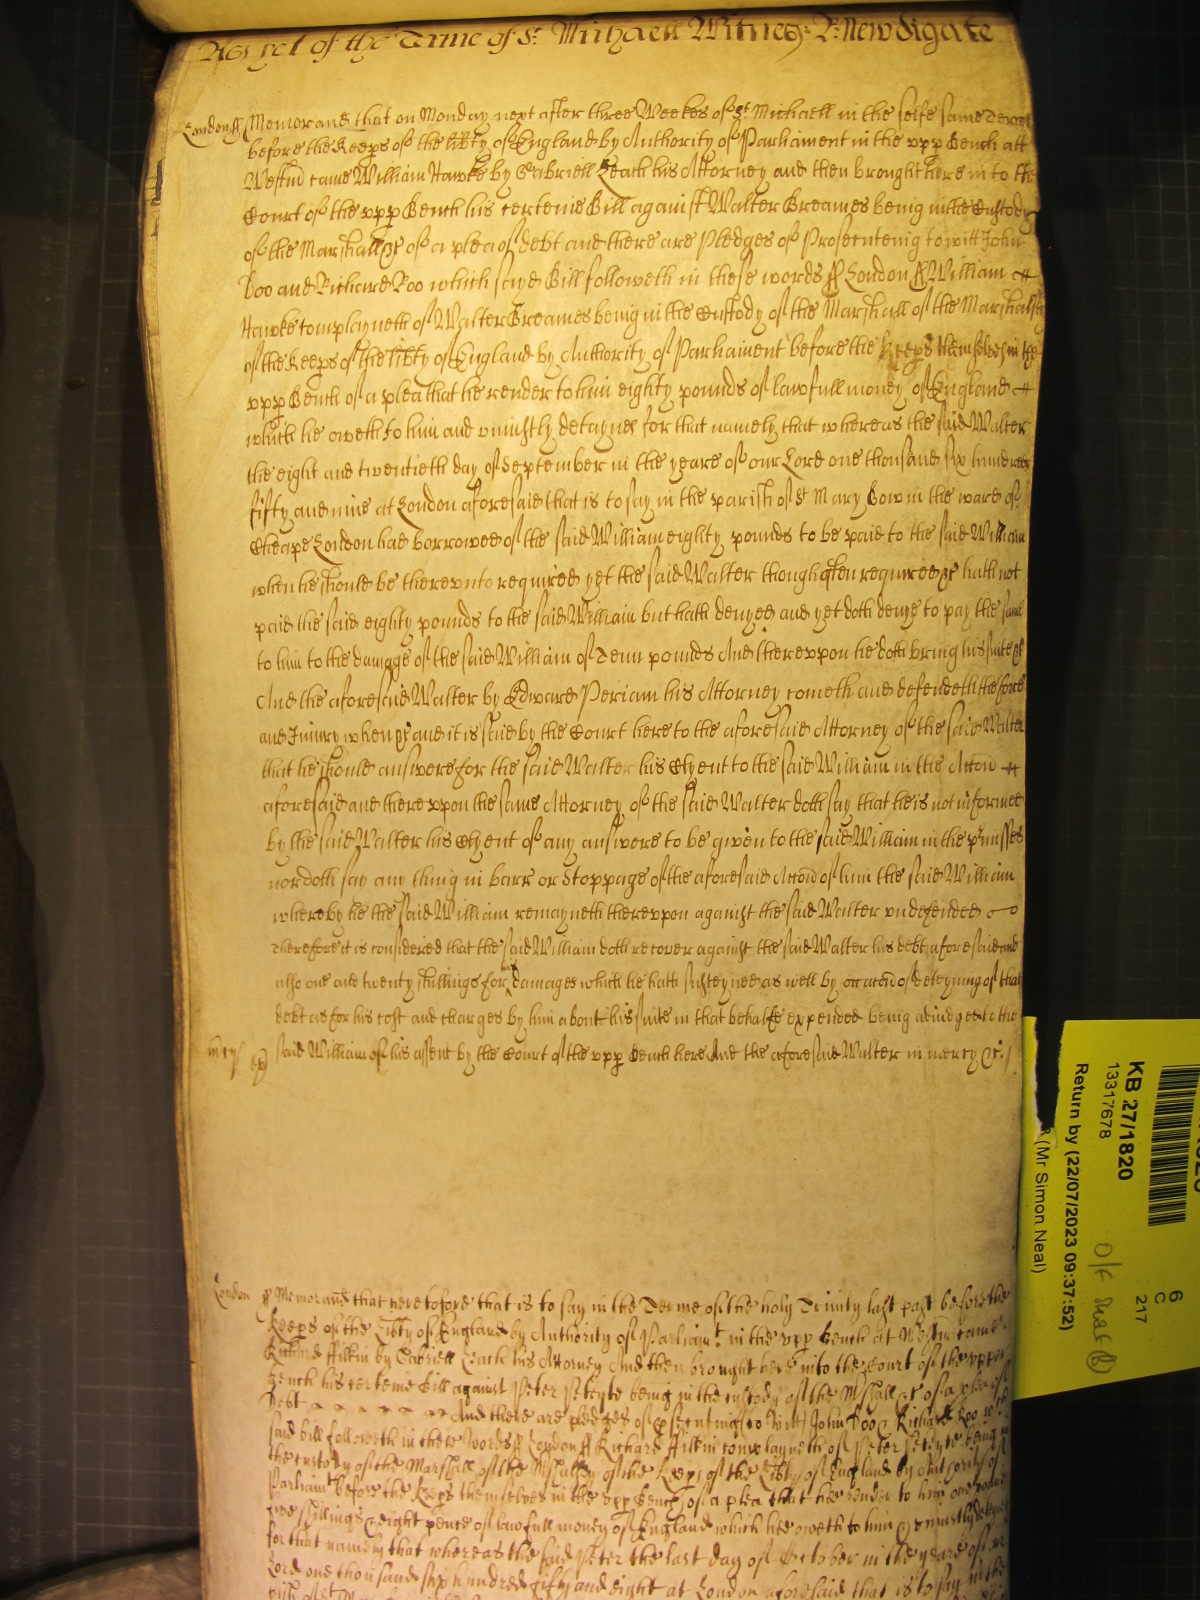 As yet of the Terme of St Michaell Witnes: R: Newdigate
London ss Memorand that on Monday next after three Weekes of St Michaell in the selfe same Terme
before the Keeps of the libty of England by Authority of Parliament in the upp Bench att
Westm came William Hawke by Gabriell Leach his Attorney and then brought here in to the
Court of the upp Bench his certeine Bill against Walter Breames being in the Custody
of the Marshall &c of a plea of debt and there are Pledges of Prosecuteing to witt John
Doo and Richard Roo which said Bill followeth in these words ss London ss William
Hawke complayneth of Walter Breames being in the Custody of the Marshall of the Marshalsey
of the Keeps of the libty of England by Authority of Parliament before the Keeps themselves in the
upp Bench of a plea that he render to him eighty pounds of lawfull money of England
which he oweth to him and uniustly detaynes for that namely that whereas the said Walter
the eight and twentieth day of September in the yeare of our Lord one thousand six hundred
fifty and nine at London aforesaid that is to say in the parish of St Mary Bow in the ward of
Cheape London had borrowed of the said William eighty pounds to be paid to the said William
when he should be thereunto required yet the said Walter though often required &c hath not
paid the said eighty pounds to the said William but hath denyed and yet doth denye to pay the same
to him to the damage of the said William of Tenn pounds And thereupon he doth bring his suite &c
And the aforesaid Walter by Edward Periam his Attorney cometh and defendeth the force
and Iniury when &c and it is said by the Court here to the aforesaid Attorney of the said Walter
that he should answere for the said Walter his Clyent to the said William in the Accon
aforesaid and thereupon the same Attorney of the said Walter doth say that he is not informed
by the said Walter his Clyent of any answere to be given to the said William in the pmisses
nor doth say any thing in barr or Stoppage of the aforesaid Accon of him the said William
whereby he the said William remayneth thereupon against the said Walter undefended
Therefore it is considered that the said William doth recover against the said Walter his debt aforesaid and
also one and twenty shillings for his damages which he hath susteyned as well by occacon of deteyning of that
debt as for his cost and charges by him about his suite in that behalfe expended being adiudged to the
mcy said William of his assent by the Court of the upp Bench here And the aforesaid Walter in mercy &c.
London ss Memorand that heretofore that is to say in the Terme of the holy Trinity last past before the
Keeps of the Libty of England by Authority of Parliamt in the upp Bench at Westm came
Richard ffilkin by Gabriell Leach his Attorney And then brought here into the Court of the upper
Bench his certeine Bill against Peter being in the custody of the Mshall &c of a plea of
Debt And there are pledges of psecuting to Witt John Doo & Richard Roo wch
said bill followeth in these words ss London ss Richard ffilkin complayneth of Peter being in
the custody of the Marshall of the Mshalsey of the Keeps of the Libty of England by Authority of
Parliamt before the Keeps themselves in the upp Bench of a plea that he render to him one
five shillings & eight pence of lawfull money of England which he oweth to him & uniustly deteynes
for that namely that whereas the said Peter the last day of October in the yeare of our
Lord one thousand six hundred fifty and eight at London aforesaid that is to say in the
pish of St
KB 27/1820
13317678
Return by (22/07/2023 09:37:52)
(Mr Simon Neal)
6
C
217